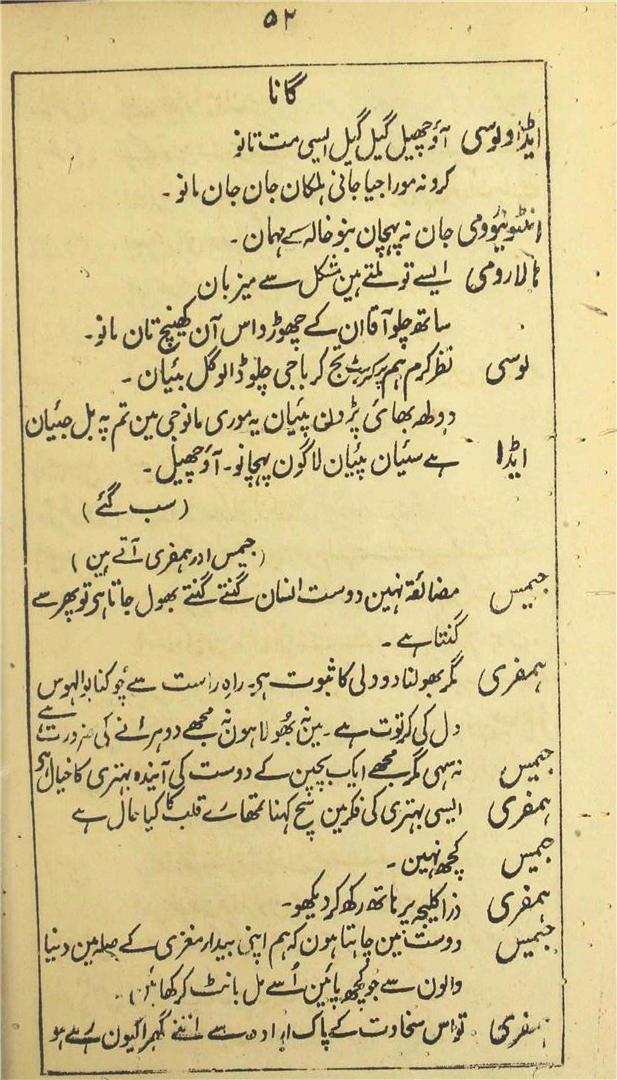 ۵۲
گانا
ایڈا ولوسی آؤ چھیل گیل گیل ایسی مت تانو
کرو نہ مورا جیا جانی ہلکان جان جان مانو۔
انٹونیو ورومی جان نہ پہچان بنو خالہ کے مہمان۔
مالارومی ایسے تو ملتے ہین شکل سے میزبان
ساتھ چلو آقا ان کے چھوڑو اس آن کھینچ تان مانو۔
لوسی نظر کرم ہم پر کر باجی چلو ڈالو گل بئیان۔
دولھہ بھائی پڑون پئیان یہ موری مانو جی مین تم پہ بل جئیان
ایڈا ہے سئیان پئیان لاگون پہچانو۔ آؤ چھیل۔
(سب گئے)
(جیمس اور ہمفری آتے ہین)
جیمس مضائقہ نہین دوست انسان گنتے گنتے بھول جاتا ہی تو پھر سے
گنتا ہے۔
ہمفری مگر بھولنا دو دلی کا ثبوت ہی۔ راہِ راست سے چوکنا بوالہوس
دل کی کرتوت ہے۔ مین نہ بھُولا ہون نہ مجھے دوہرانے کی ضرورت ہے
جیمس نہ سہی مگر مجھے ایک بچپن کے دوست کی آیندہ بہتری کا خیال ہی
ہمفری ایسی بہتری کی فکر مین سچ کہنا تمھارے قلب کا کیا حال ہے
جیمس کچھ نہین۔
ہمفری ذرا کلیجہ پر ہاتھ رکھ کر دیکھو۔
جیمس دوست مین چاہتا ہون کہ ہم اپنی بیدار مغزی کے صلہ مین دنیا
والون سے جو کچھ پائین اُسے مل بانٹ کر کھائین۔
ہمفری تو اس سخاوت کے پاک ارادہ سے اتنے گھبرا کیون رہے ہو